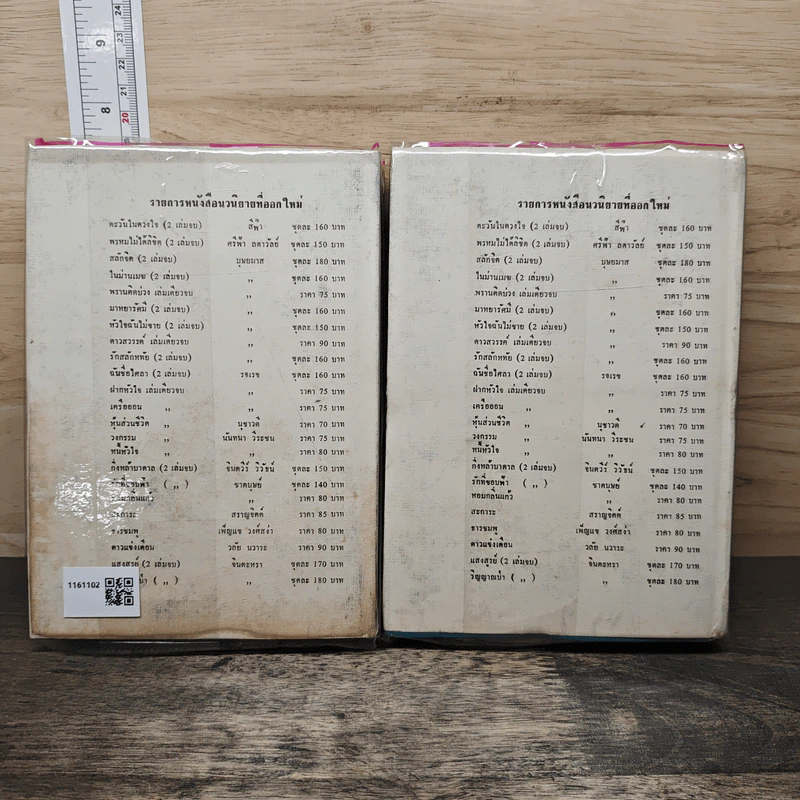 9
24
23
22
21
20
8
รายการหนังสือนวนิยายที่ออกใหม่
ตะวันในดวงใจ (2 เล่มจบ) สีฟ้า ชุดละ 160 บาท
พรหมไม่ได้ลิขิต (2 เล่มจบ) ศรีฟ้า ลดาวัลย์ ชุดละ 150 บาท
สลักจิต (2 เล่มจบ) บุษยมาส ชุดละ 180 บาท
ในม่านเมฆ (2 เล่มจบ) ,, ชุดละ 160 บาท
พรานดิดบ่วง เล่มเดียวจบ ,, ราคา 75 บาท
มาทยารัศมี (2 เล่มจบ) ,, ชุดละ 160 บาท
หัวใจฉันไม่ขาย (2 เล่มจบ) ,, ชุดละ 150 บาท
ดาวสวรรค์ เล่มเดียวจบ ,, ราคา 90 บาท
รักสลักหทัย (2 เล่มจบ) ,, ชุดละ 160 บาท
ฉันชื่อไศลา (2 เล่มจบ) รจเรข ชุดละ 160 บาท
ฝากหัวใจ เล่มเดียวจบ ,, ราคา 75 บาท
เครือออน ,, ,, ราคา 75 บาท
หุ้นส่วนชีวิต ,, นุชาวดี ราคา 70 บาท
วงกรรม ,, นันทนา วีระชน ราคา 75 บาท
หนี้หัวใจ ,, ,, ราคา 80 บาท
กิ่งหล้าบาดาล (2 เล่มจบ) จินตวีร์ วิวัธน์ ชุดละ 150 บาท
รักที่ขอบฟ้า ( ,, ) ชาตบุษย์ ชุดละ 140 บาท
หอมกลิ่นแก้ว ,, ราคา 80 บาท
สะการะ สราญจิตต์ ราคา 85 บาท
ธารชมพู เพ็ญแข วงศ์สง่า ราคา 80 บาท
ดาวแข่งเดือน วลัย นวาระ ราคา 90 บาท
แสงสูรย์ (2 เล่มจบ) จินตะหรา ชุดละ 170 บาท
( ,, ) ,, ชุดละ 180 บาท
1161102
รายการหนังสือนวนิยายที่ออกใหม่
ตะวันในดวงใจ (2 เล่มจบ) สีฟ้า ชุดละ 160 บาท
พรหมไม่ได้ลิขิต (2 เล่มจบ) ศรีฟ้า ลดาวัลย์ ชุดละ 150 บาท
สลักจิต (2 เล่มจบ) บุษยมาส ชุดละ 180 บาท
ในม่านเมฆ (2 เล่มจบ) ,, ชุดละ 160 บาท
พรานดิดบ่วง เล่มเดียวจบ ,, ราคา 75 บาท
มาทยารัศมี (2 เล่มจบ) ,, ชุดละ 160 บาท
หัวใจฉันไม่ขาย (2 เล่มจบ) ,, ชุดละ 150 บาท
ดาวสวรรค์ เล่มเดียวจบ ,, ราคา 90 บาท
รักสลักหทัย (2 เล่มจบ) ,, ชุดละ 160 บาท
ฉันชื่อไศลา (2 เล่มจบ) รจเรข ชุดละ 160 บาท
ฝากหัวใจ เล่มเดียวจบ ,, ราคา 75 บาท
เครือออน ,, ,, ราคา 75 บาท
หุ้นส่วนชีวิต ,, นุชาวดี ราคา 70 บาท
วงกรรม ,, นันทนา วีระชน ราคา 75 บาท
หนี้หัวใจ ,, ,, ราคา 80 บาท
กิ่งหล้าบาดาล (2 เล่มจบ) จินตวีร์ วิวัธน์ ชุดละ 150 บาท
รักที่ขอบฟ้า ( ,, ) ชาตบุษย์ ชุดละ 140 บาท
หอมกลิ่นแก้ว ,, ราคา 80 บาท
สะการะ สราญจิตต์ ราคา 85 บาท
ธารชมพู เพ็ญแข วงศ์สง่า ราคา 80 บาท
ดาวแข่งเดือน วลัย นวาระ ราคา 90 บาท
แสงสูรย์ (2 เล่มจบ) จินตะหรา ชุดละ 170 บาท
วิญญาณป่า ( ,, ) ,, ชุดละ 180 บาท